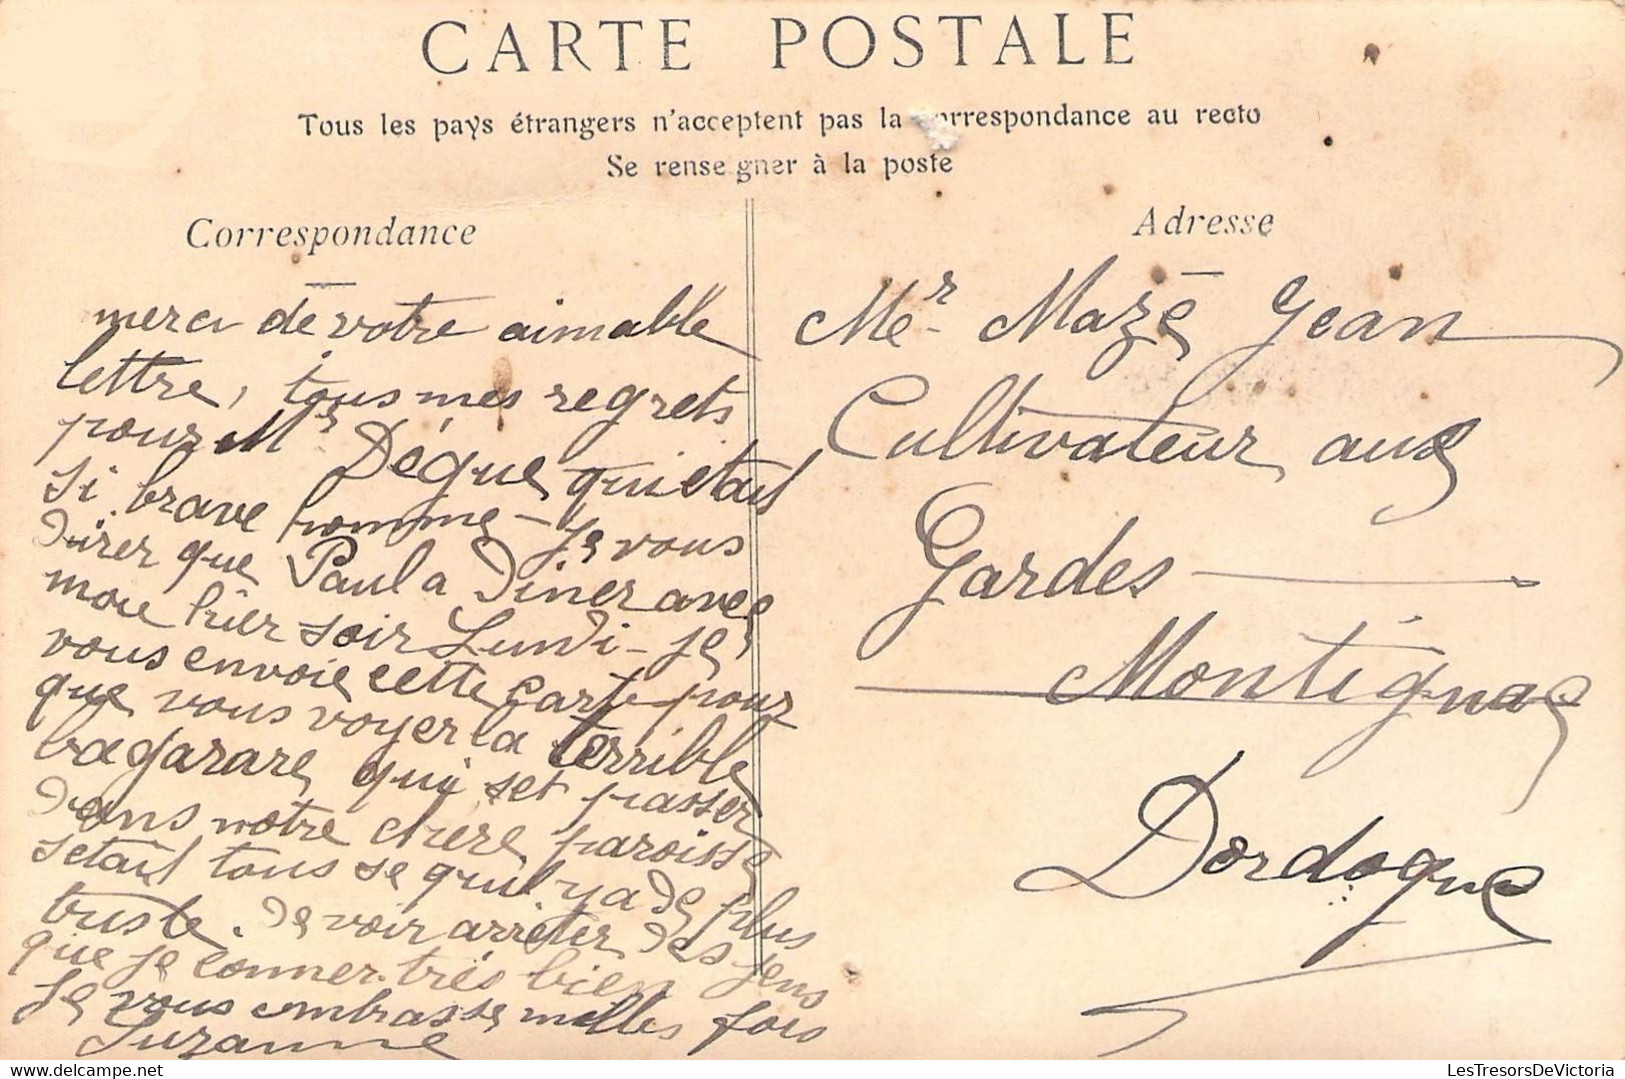 CARTE POSTALE
Tous les pays étrangers n'acceptent pas la correspondance au recto
Se renseigner à la poste
Correspondance
merci de votre aimable
lettre, tous mes regrets
pour Mr Dégue qui etait
si brave homme - je vous
direr que Paul a diner avec
moie hier soir Lundi - je
vous envoie cette carte pour
que vous voyer la terrible
bagarare qui set passer
dans notre chere paroisse
setait tous se quil y a de plus
triste. de voir arrêter des jens
que je conner très bien
je vous embrasse milles fois
Suzanne
Adresse
Mr Mazé Jean
Cultivateur aux
Gardes
Montignac
Dordogne
LesTresorsDeVictoria